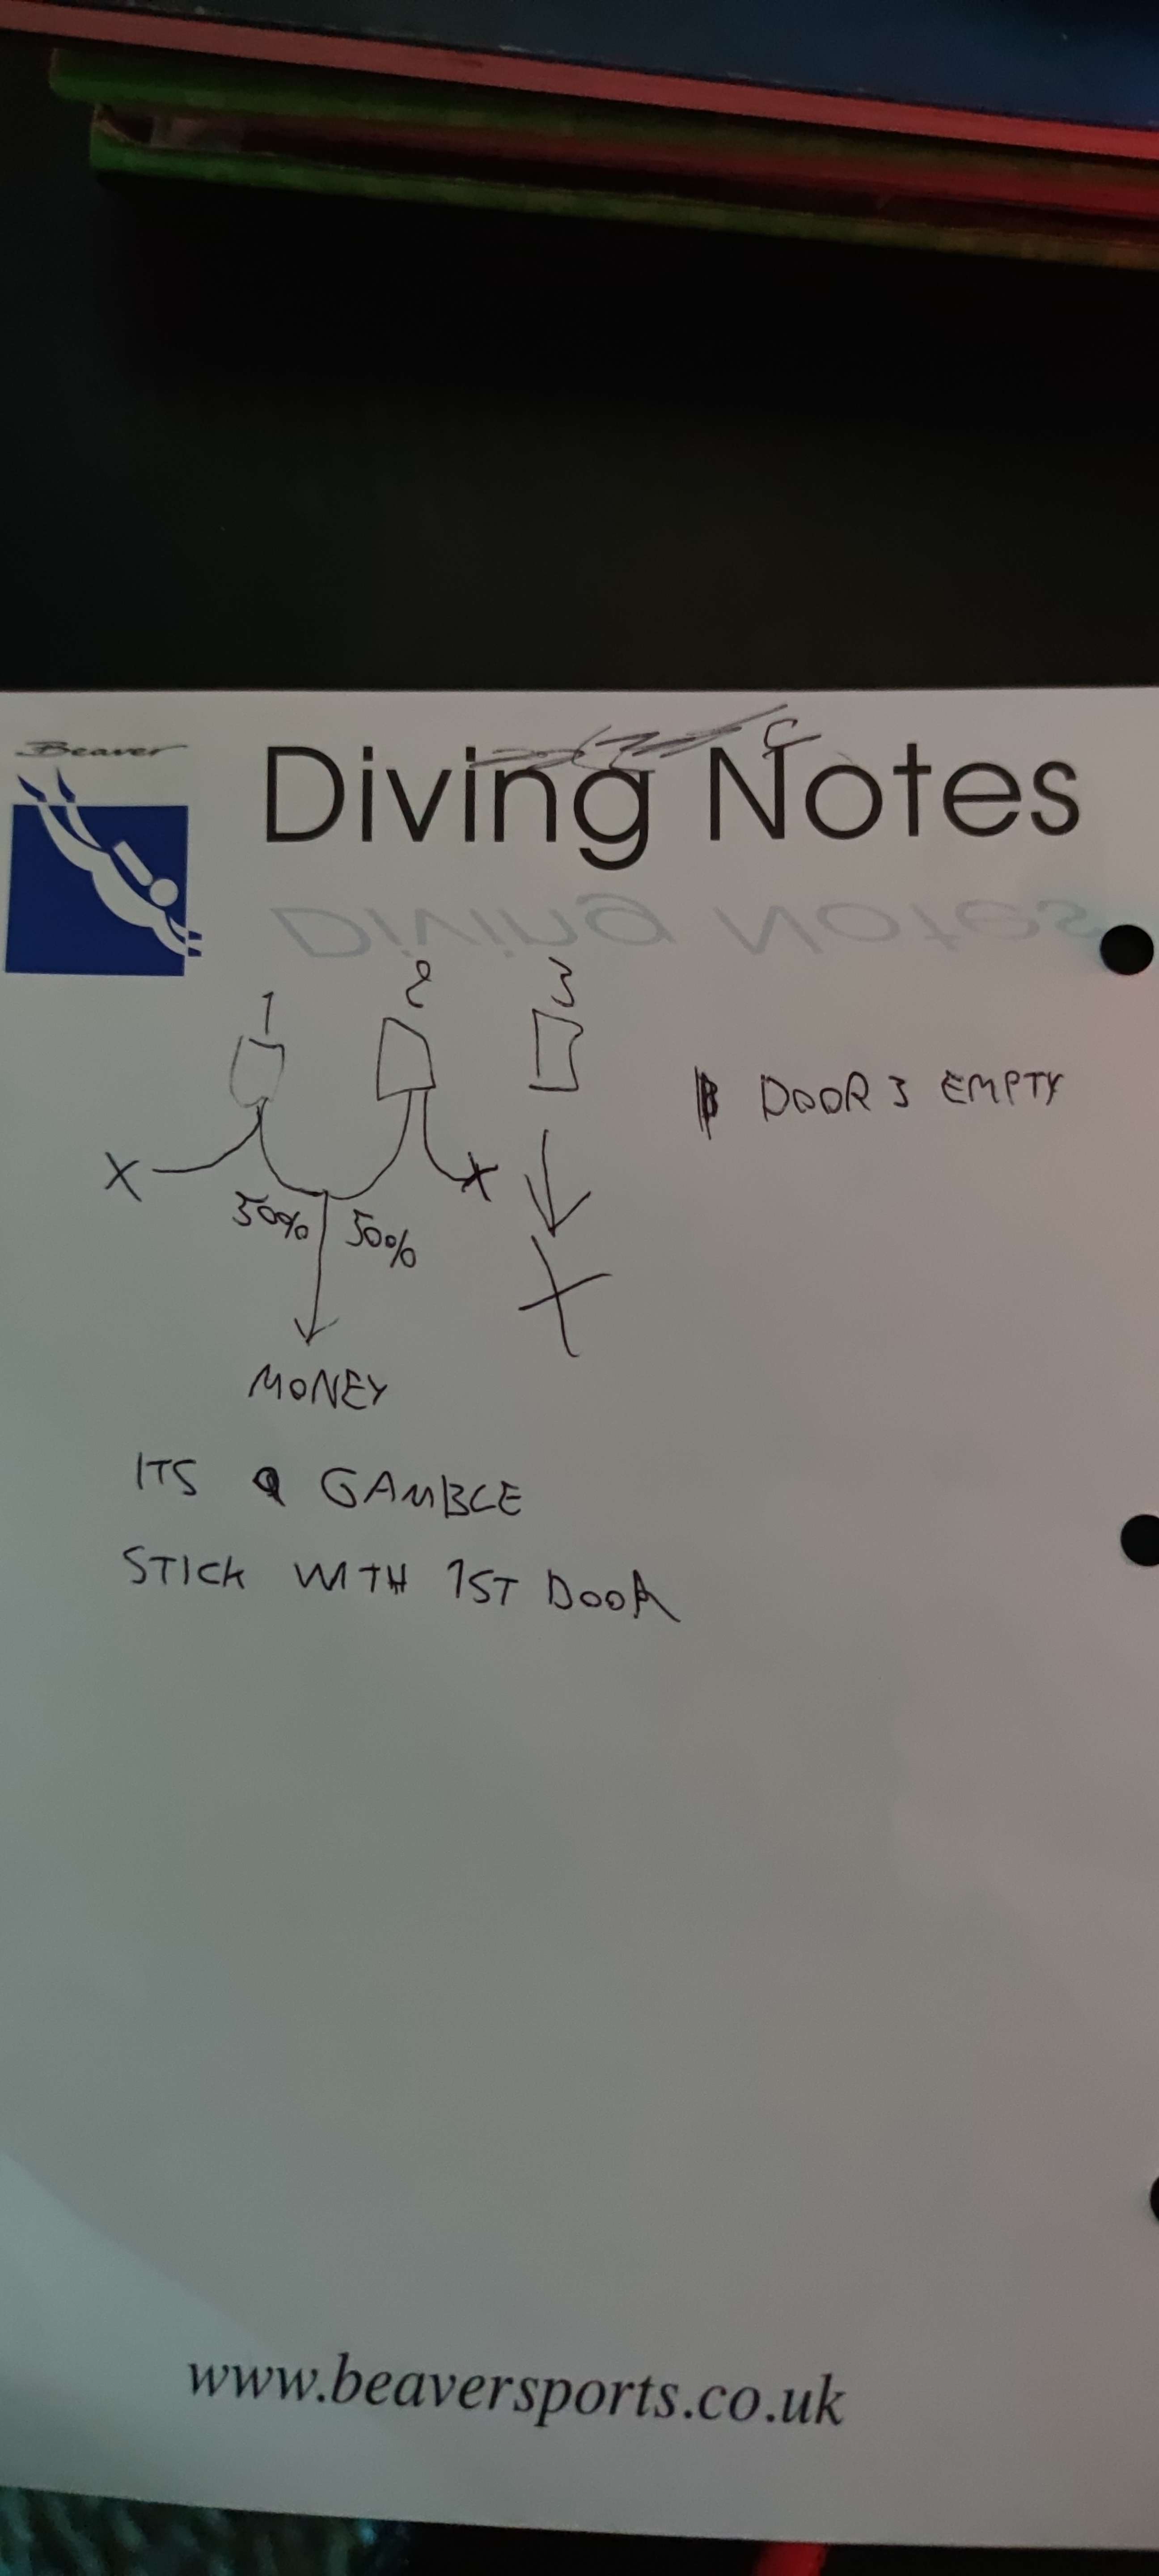 Beaver
Diving Notes
1 2 3
DOOR 3 EMPTY
X X
50% 50%
X
MONEY
ITS A GAMBLE
STICK WITH 1ST DOOR
www.beaversports.co.uk